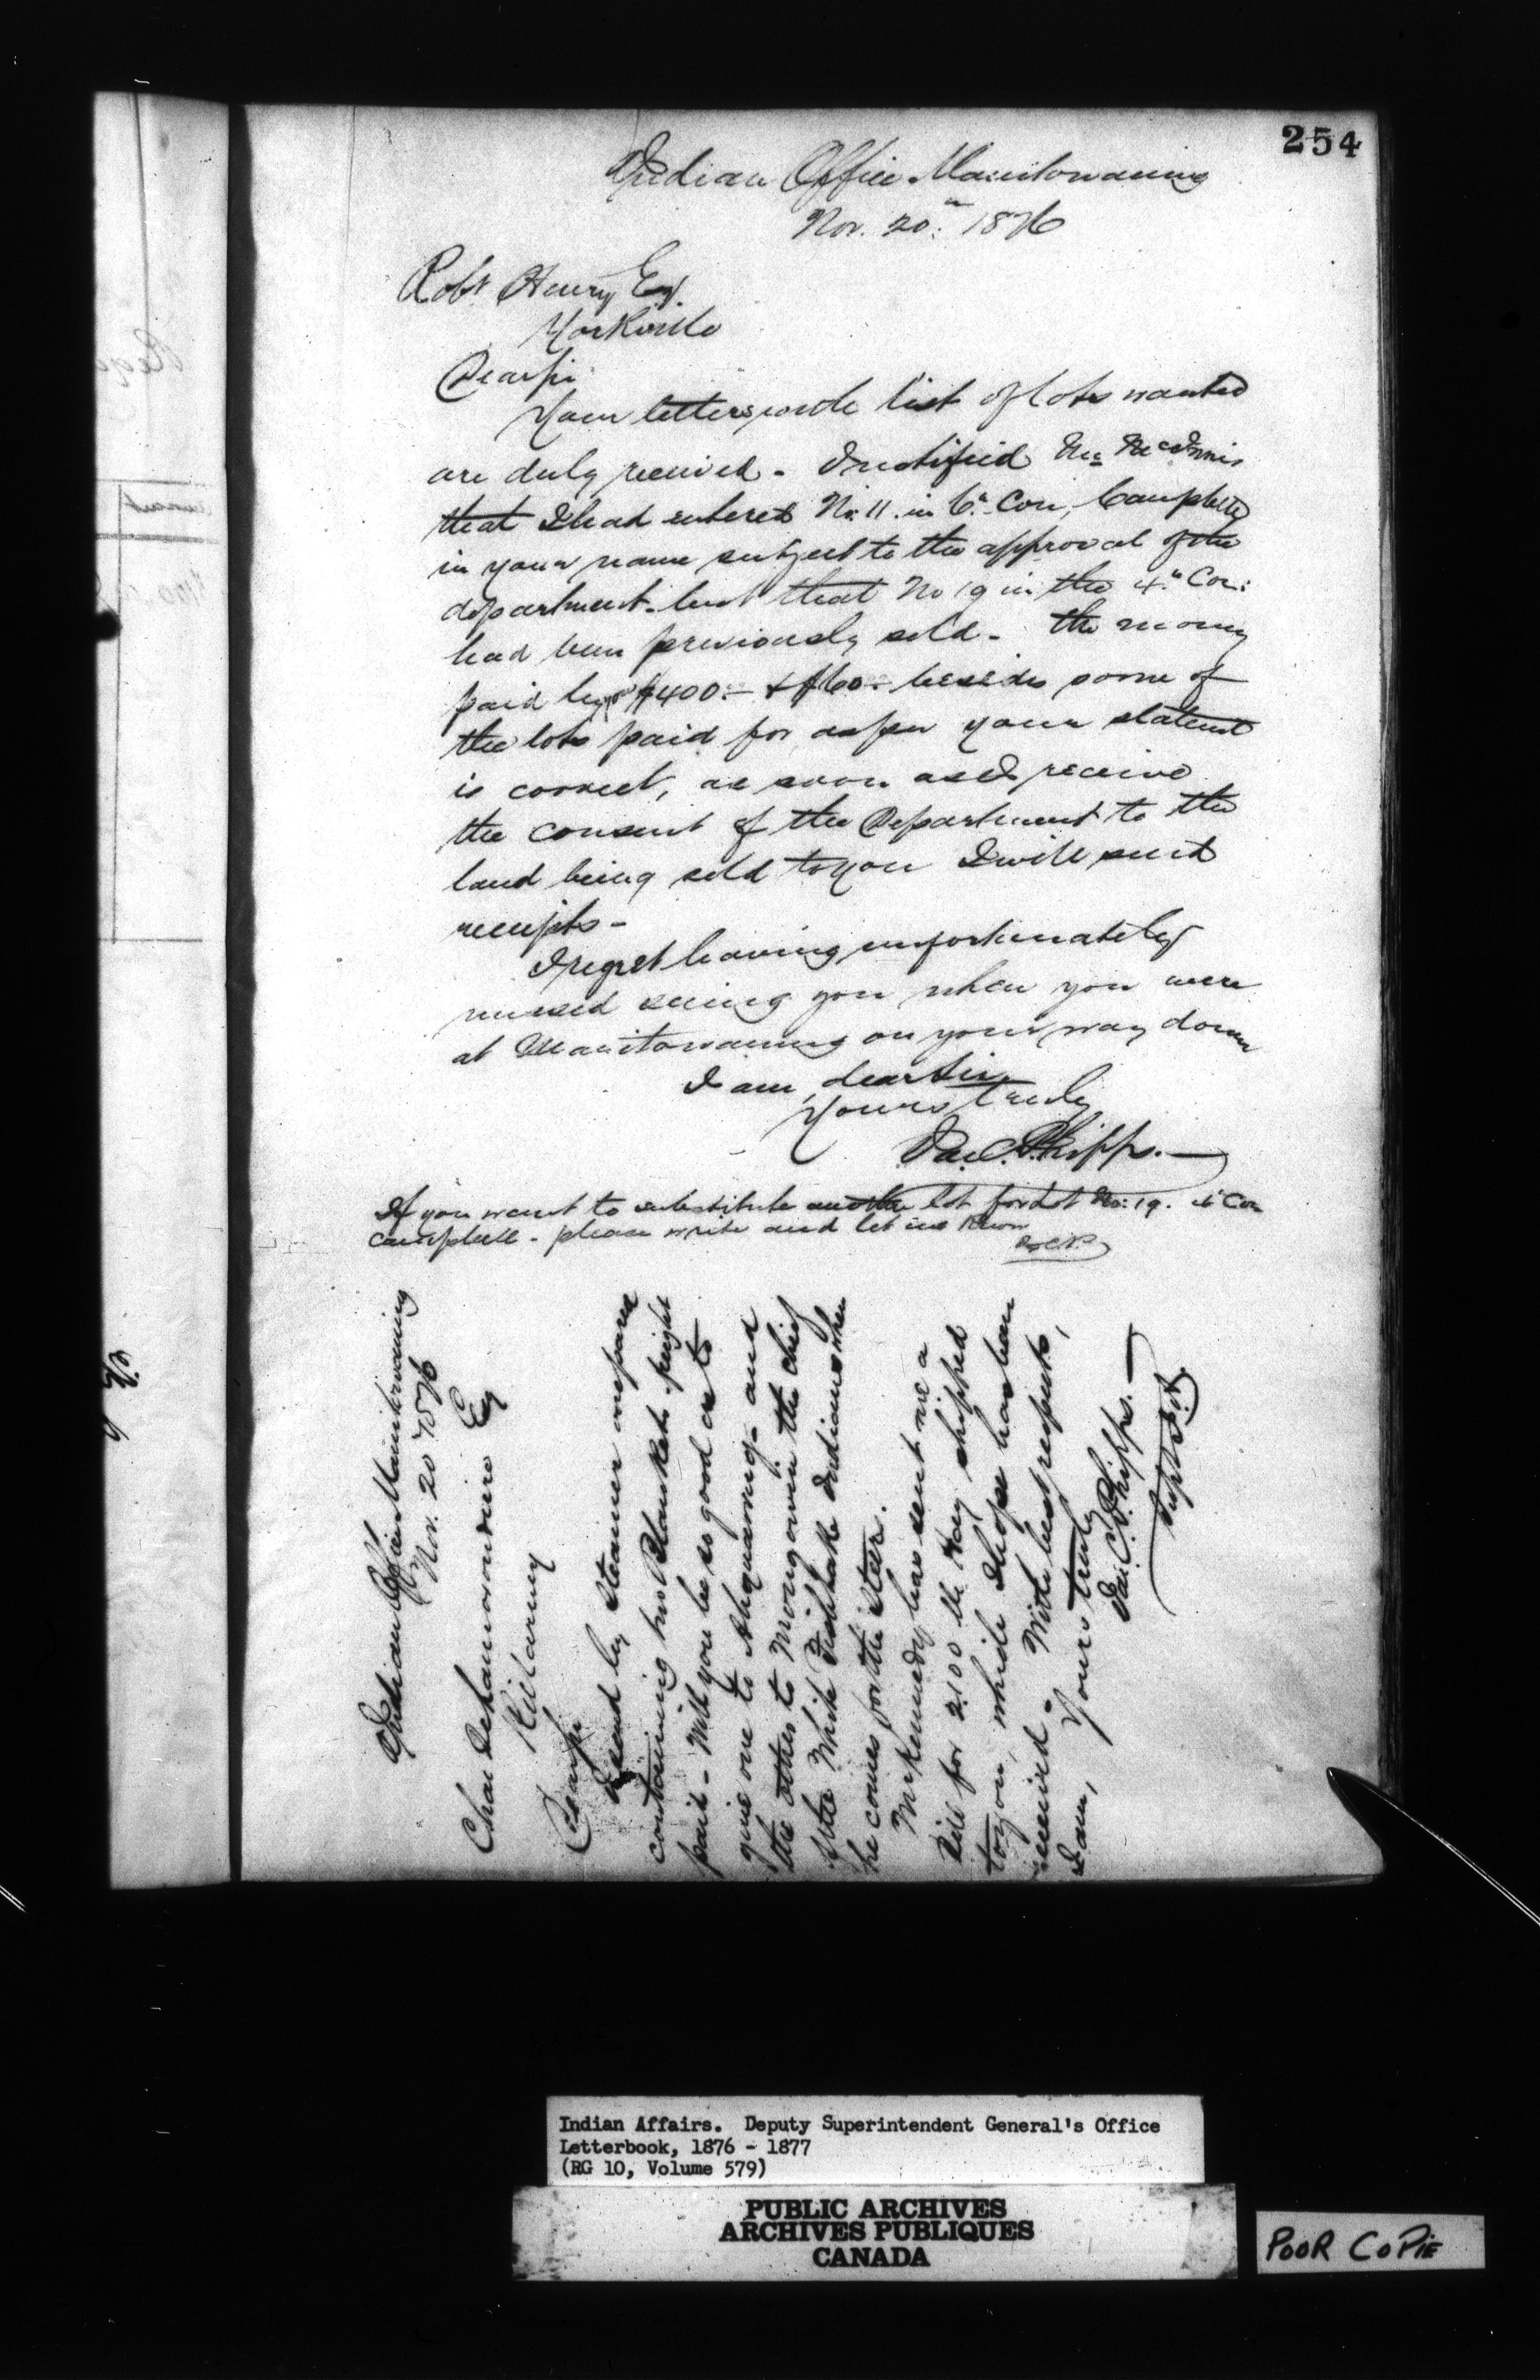 254
Indian Office Manitowaning
Nov. 20th 1876
Robt Henry Esq.
Yorkville
Dear Sir
Your letters with list of lots wanted
are duly received - I notified Mr. McInnis
that I had entered No. 11 in 6th Con, Campbell
in your name subject to the approval of the
department. but that No 19 in the 4th Con:
had been previously sold - The money
paid by you $400.- & $160.- besides some of
the lots paid for as per your statement
is correct, as soon as I receive
the consent of the Department to the
land being sold to you I will send
receipts -
I regret having unfortunately
missed seeing you when you were
at Manitowaning on your way down
I am, dear Sir
Yours truly
Jas. C. Phipps.
If you want to substitute another lot for Lot No: 19. 4th Con
Campbell - please write and let me know
JCP
Indian Office Manitowaning
Nov. 20 1876
Chas De Lamorondiere Esq
Killarney
Dear Sir
I send by Steamer a parcel
containing two Blankets freight
paid - Will you be so good as to
give one to and
the other to Mongowin the chief
of the White Fish lake Indians when
he comes for the Steer.
Mr Kennedy has sent me a
Bill for 2100 lb Hay shipped
to you, which I hope has been
received - With best respects,
I am, Yours truly
Jas. C. Phipps.
Supt I.A.
Indian Affairs. Deputy Superintendent General's Office
Letterbook, 1876 - 1877
(RG 10, Volume 579)
PUBLIC ARCHIVES
ARCHIVES PUBLIQUES
CANADA
POOR COPIE